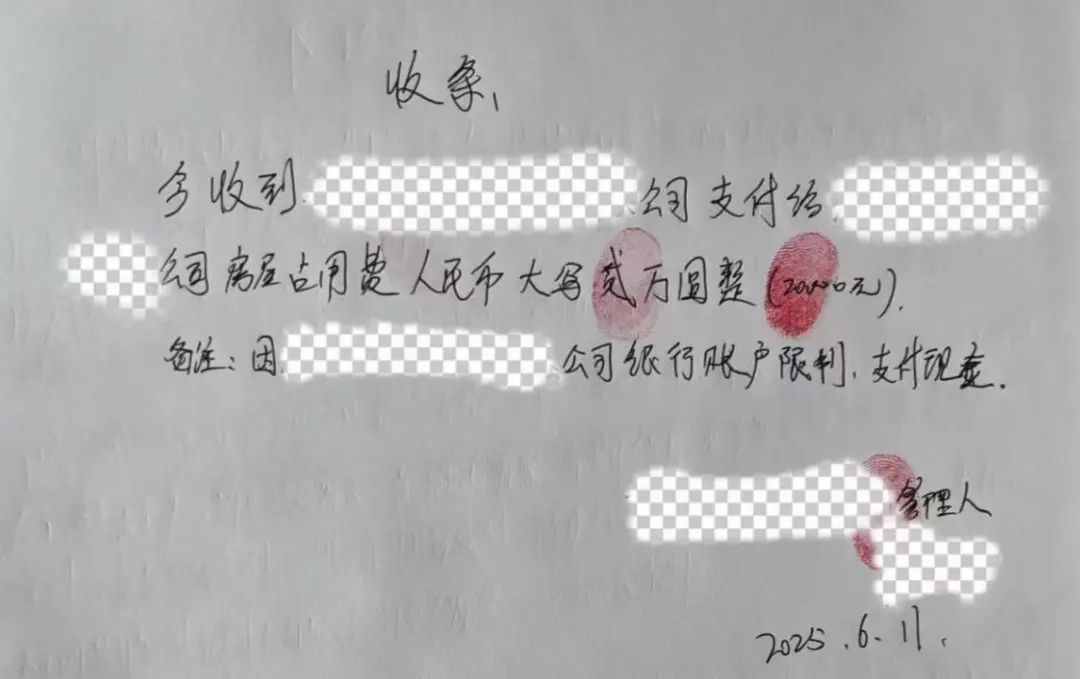 收条
今收到 公司支付给
公司房屋占用费人民币大写贰万圆整(20000元).
备注:因 公司银行账户限制,支付现金.
管理人
2025.6.11.